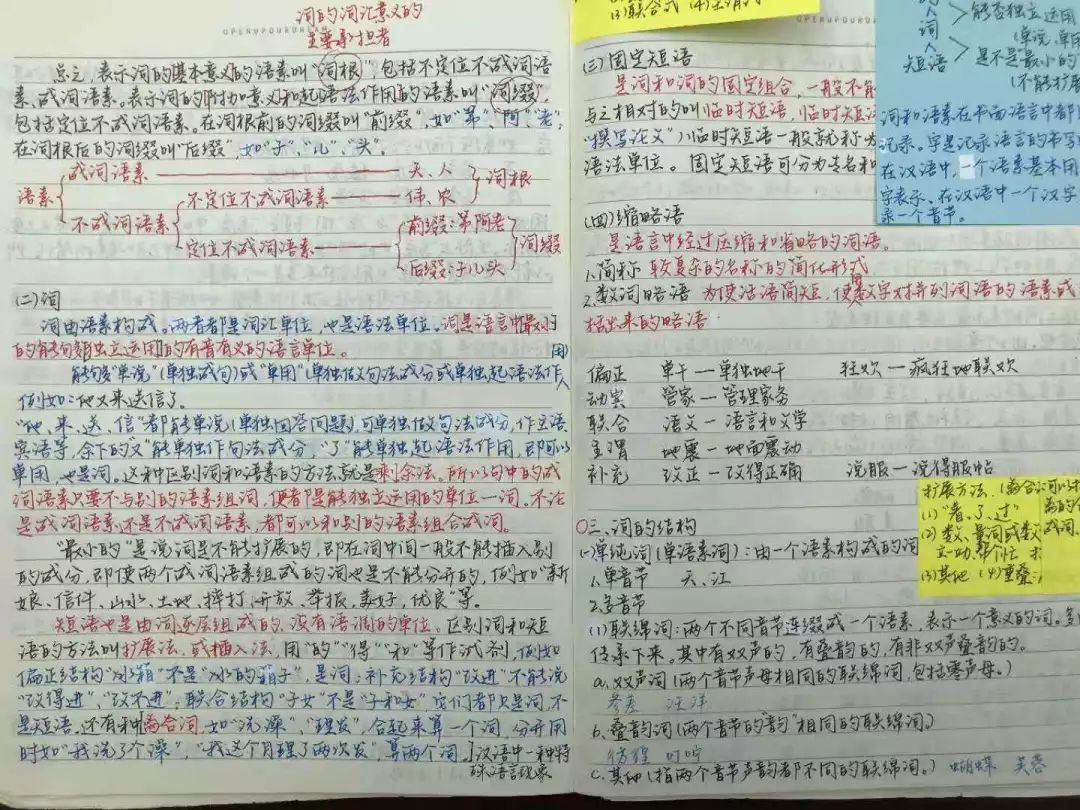 词的词汇意义的
主要承担者
总之,表示词的基本意义的语素叫"词根",包括不定位不成词语
素、成词语素。表示词的附加意义和起语法作用的语素叫"词缀",
包括定位不成词语素。在词根前的词缀叫"前缀",如"第、阿、老",
在词根后的词缀叫"后缀",如"子"、"儿"、"头"。
语素
成词语素 天、人
不成词语素
不定位不成词语素 伟、农
定位不成词语素
词根
前缀:第阿老
后缀:子儿头
词缀
(二)词
词由语素构成。两者都是词汇单位,也是语法单位。词是语言中最小的
的能够独立运用的有音有义的语言单位。
能够"单说"(单独成句)或"单用"(单独做句法成分或单独起语法作用)
例如:他又来送信了。
"他、来、送、信"都能单说(单独回答问题),可单独做句法成分,作主语、
宾语等,余下的"又"能单独作句法成分,"了"能单独起语法作用,即可以
单用,也是词。这种区别词和语素的方法就是剩余法。所以句中的成
词语素只要不与别的语素组词,便都是能独立运用的单位—词。不论
是成词语素还是不成词语素,都可以和别的语素组合成词。
"最小的"是说词是不能扩展的,即在词中间一般不能插入别
的成分,即使两个成词语素组成的词也是不能分开的,例如"新
娘、信件、山水、土地、摔打、开放、举报、美好、优良"等。
短语也是由词逐层组成的、没有语调的单位。区别词和短
语的方法叫扩展法,或插入法,用"的""得""和"等作试剂,例如
偏正结构"冰箱"不是"冰的箱子",是词;补充结构"改进"不能说
"改得进"、"改不进";联合结构"子女"不是"子和女",它们都只是词,不
是短语。还有种离合词,如"洗澡"、"理发",合起来算一个词,分开用
时如"我洗了个澡"、"我这个月理了两次发",算两个词。
汉语中一种特
殊语言现象
(3)联合式 (4)主谓式
(三)固定短语
是词和词的固定组合,一般不能
与之相对的叫临时短语,临时短语
"撰写论文")临时短语一般就称为
语法单位。固定短语可分为专名和
(四)缩略语
是语言中经过压缩和省略的词语。
1.简称 较复杂的名称的简化形式
2.数词略语 为使话语简短,使用数字对并列词语的语素或
括出来的略语
偏正 单干—单独地干 狂欢—疯狂地联欢
动宾 管家—管理家务
联合 语文—语言和文学
主谓 地震—地面震动
补充 改正—改得正确 说服—说得服帖
三、词的结构
(一)单纯词(单语素词):由一个语素构成的词
1.单音节 天、江
2.多音节
(1)联绵词:两个不同音节连缀成一个语素,表示一个意义的词。多
传承下来。其中有双声的,有叠韵的,有非双声叠韵的。
a.双声词(两个音节声母相同的联绵词,包括零声母。)
参差 汪洋
b.叠韵词(两个音节的"韵"相同的联绵词)
彷徨 叮咛
c.其他(指两个音节声韵都不同的联绵词。) 蝴蝶 芙蓉
词
短语
能否独立运用
(单说、单用
是不是最小的
(不能扩展
词和语素在书面语言中都
记录。字是记录语言的书写
在汉语中,一个语素基本用
字表示、在汉语中一个汉字
示一个音节。
扩展方法.(离合词可以
(1)"着、了、过"
(2)数、量词或数
(3)其他 (4)重叠